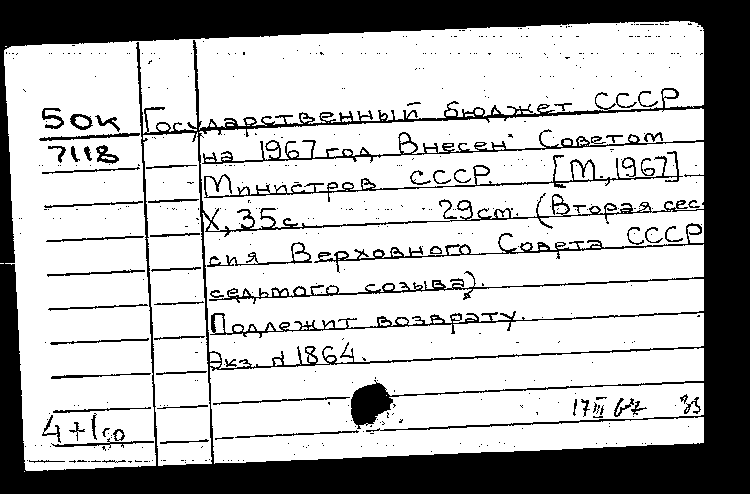 50к Государственный бюджет СССР
7118 на 1967 год. Внесен Советом
Министров СССР. [М., 1967]
X, 35 с. 29 см. (Вторая сес-
сия Верховного Совета СССР
седьмого созыва).
Подлежит возврату.
Экз. N 1864.
17 III 67
4+1